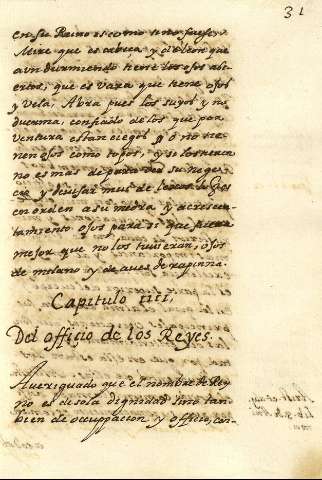 31
en su Reino es como si no fuese,
Mire que es cabeça y de leon que
aun durmiendo tiene los ojos abi
ertos, que es vara que tiene ojos
y vela, Abra pues los suyos y no
duerma, confiado de los que por
ventura estan ciegos y ó no tie-
nen ojos como topos, y si los tienen
no es mas de para ver su nego-
cio y divisar mui de lexos
en orden a su medra y acrecen-
tamiento ojos para si que fuera
mejor que no los tuvieran, ojos
de milano y de aves de rapinna.
Capitulo IIII.
Del officio de los Reyes.
Averiguado que el nombre de Rey
no es de sola dignidad sino tan-
bien de occuppacion y officio, con-